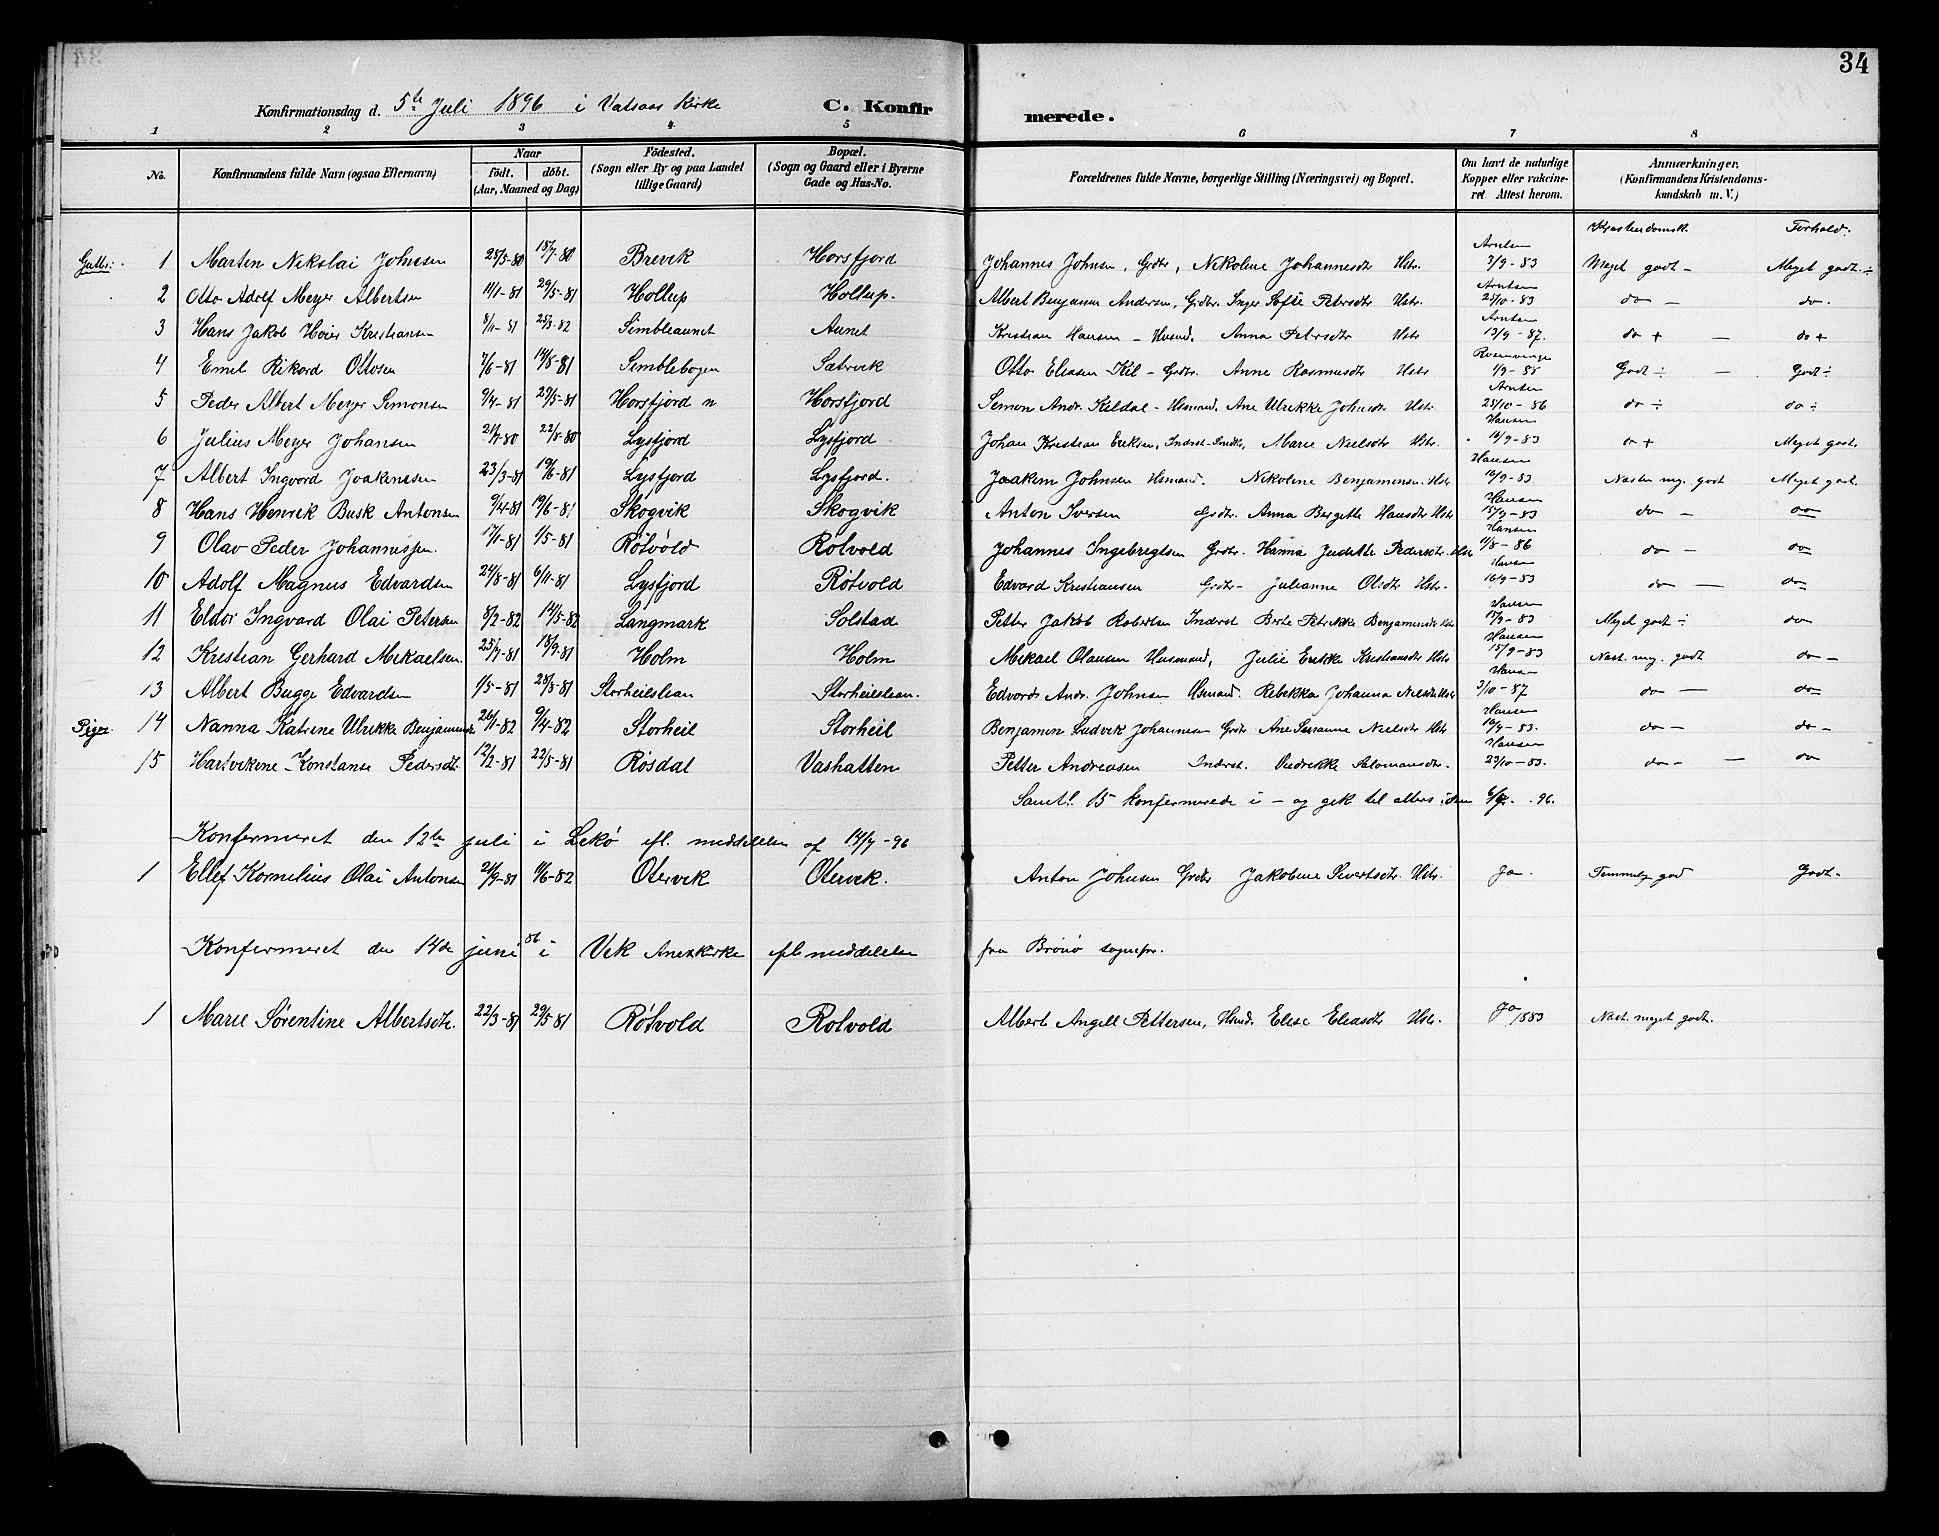 34
Konfirmationsdag d. 5te Juli 1896 i Vatsaas Kirke C. Konfirmerede.
1 2 3 4 5 6 7 8
No. Konfirmandens fulde Navn (ogsaa Efternavn) Naar født. døbt. (Aar, Maaned og Dag) Fødested. (Sogn eller By og paa Landet tillige Gaard) Bopæl. (Sogn og Gaard eller i Byerne Gade og Hus-No. Forældrenes fulde Navne, borgerlige Stilling (Næringsvei) og Bopæl. Om havt de naturlige Kopper eller vakcineret Attest herom. Anmærkninger. (Konfirmandens Kristendomskundskab m. V.)
Kristendomsk. Forhold:
Gutter: 1 Marten Nikolai Johnsen 25/5-80 18/7-80 Brevik Horsfjord Johannes Johnsen, Grdbr, Nikoline Johannesdtr Hstr. Arntsen 3/9-83 Meget godt - Meget godt ÷
2 Otto Adolf Meyer Albertsen 11/1-81 29/5-81 Hollup Hollup. Albert Benjamin Andersen, Grdbr. Inger Sofie Petersdtr Hstr. Arntsen 25/10-83 do - do.
3 Hans Jakob Høier Kristiansen 8/11-81 25/3-82 Simbleaunet Aunet Kristian Hansen - Husmd. Anna Petersdtr Hstr Arntsen 13/9-87. do + - do +
4 Emil Rikard Ottosen 7/6-81 14/8-81 Simblebogen Sætervik Otto Eliasen Kil - Grdbr. Anne Rasmusdtr Hstr Rosenvinge 1/9-85 Godt ÷ - Godt ÷
5 Peder Albert Meyer Simonsen 9/4-81 29/5-81 Horsfjord n Horsfjord Simon Andr. Kildal - Husmand. Ane Ulrikke Johnsdtr Hstr. Arntsen 25/10-86 do ÷ do ÷
6 Julius Meyer Johansen 21/4-80 22/8-80 Lysfjord Lysfjord Johan Kristian Eriksen, Inderst-Smed, Marie Nielsdtr Hstr. Hansen 16/9-83 do + Meget godt.
7 Albert Ingvord Joakimsen 23/3-81 19/6-81 Lysfjord Lysfjord. Joakim Johnsen Husmand. Nikoline Benjaminsen. Hstr Hansen 16/9-83 Næsten mg. godt Meget godt.
8 Hans Henrik Busk Antonsen 9/4-81 19/6-81 Skogvik Skogvik Anton Iversen Grdbr. Anna Bergette Hansdtr Hstr Hansen 15/9-83 do - do
9 Olav Peder Johannessen. 17/1-81 1/5-81 Røtvold Rotvold Johannes Ingebregtsen Grdbr. Hanna Judette Pedersdtr. Hstr Hansen 11/8-86 do - do
10 Adolf Magnus Edvardsen 24/8-81 6/11-81 Lysfjord Røtvold Edvard Kristiansen Grdbr- Julianne Olsdtr Hstr. Hansen 16/9-83 do - do
11 Eldor Ingvard Olai Petersen 8/2-82 14/5-82 Langmark Solstad Petter Jakob Robertsen Inderst Berte Petrikke Benjaminsdtr Hstr Hansen 15/9-83 Meget godt ÷ do
12 Kristian Gerhard Mikaelsen. 25/7-81 18/9-81 Holm Holm Mikael Olausen Husmand, Julie Erikke Kristiansdtr Hstr Hansen 15/9-83 Næst. mg. godt do -
13 Albert Bugge Edvardsen 1/5-81 28/8-81 Storheilslean Storheilslean. Edvard Andr. Johnsen Husmand. Rebekka Johanna Nielsdtr Hstr Hansen 3/10-87 do - do
Piger. 14 Nanna Katrine Ulrikke Benjaminsdtr 26/1-82 9/4-82 Storheil Storheil Benjamin Ludvik Johannesen Grdbr Ane Susanne Nielsdtr Hstr Hansen 16/9-83. do - do -
15 Hartvikene Konstanse Pedersdtr. 12/2-81 22/5-81 Røsdal Vashatten Petter Andreasen Inderst. Vedrikke Salomonsdtr. Hansen 23/10-83. do - - do
Samtl. 15 konfirmerede i - og gik til alters i dem 6/7. -96.
Konfermeret den 12te juli i Lekø efl. meddelelse af 14/7-96
1 Ellef Kornelius Olai Antonsen 21/9-81 11/6-82 Otervik Otervik. Anton Johnsen Grdbr Jakobine Sivertsdtr. Hstr. Ja. Temmelig god Godt-
Konfermeret den 14de juni 96 i Vik Anexkirke efl meddelelse fra Brønø sognepr.
1 Marie Sørentine Albertsdtr. 22/3-81 29/5-81 Røtvold Rotvold Albert Angell Pettersen, Husmd. Elise Eliasdtr Hstr. Ja 1883 Næst. meget godt.